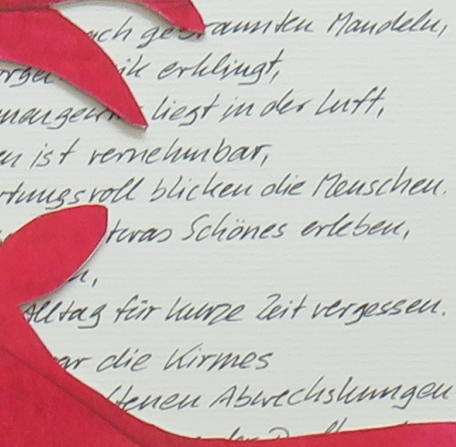 ach gebrannten Mandeln,
ik erklingt,
liegt in der Luft,
en ist vernehmbar,
rtungsvoll blicken die Menschen.
twas Schönes erleben,
n,
Alltag für kurze Zeit vergessen.
ar die Kirmes
ltenen Abwechslungen